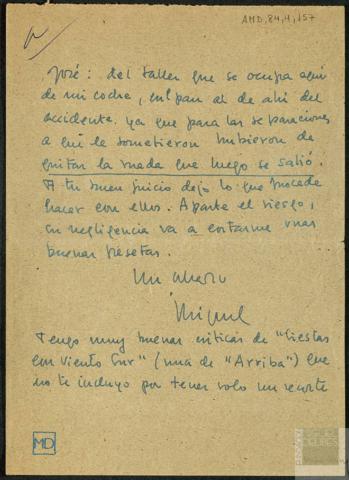 AMD, 84, 4, 157
José: del taller que se ocupa aquí
de mi coche, culpan al de ahí del
accidente. ya que para las reparaciones
a que le sometieron hubieron de
quitar la rueda que luego se salió.
A tu buen juicio dejo lo que procede
hacer con ellos. Aparte el riesgo,
su negligencia va a costarme unas
buenas pesetas.
Un abrazo
Miguel
Tengo muy buenas críticas de "Siestas
con viento Sur" (una de "Arriba") que
no te incluyo por tener solo un recorte
MD
DELIBES